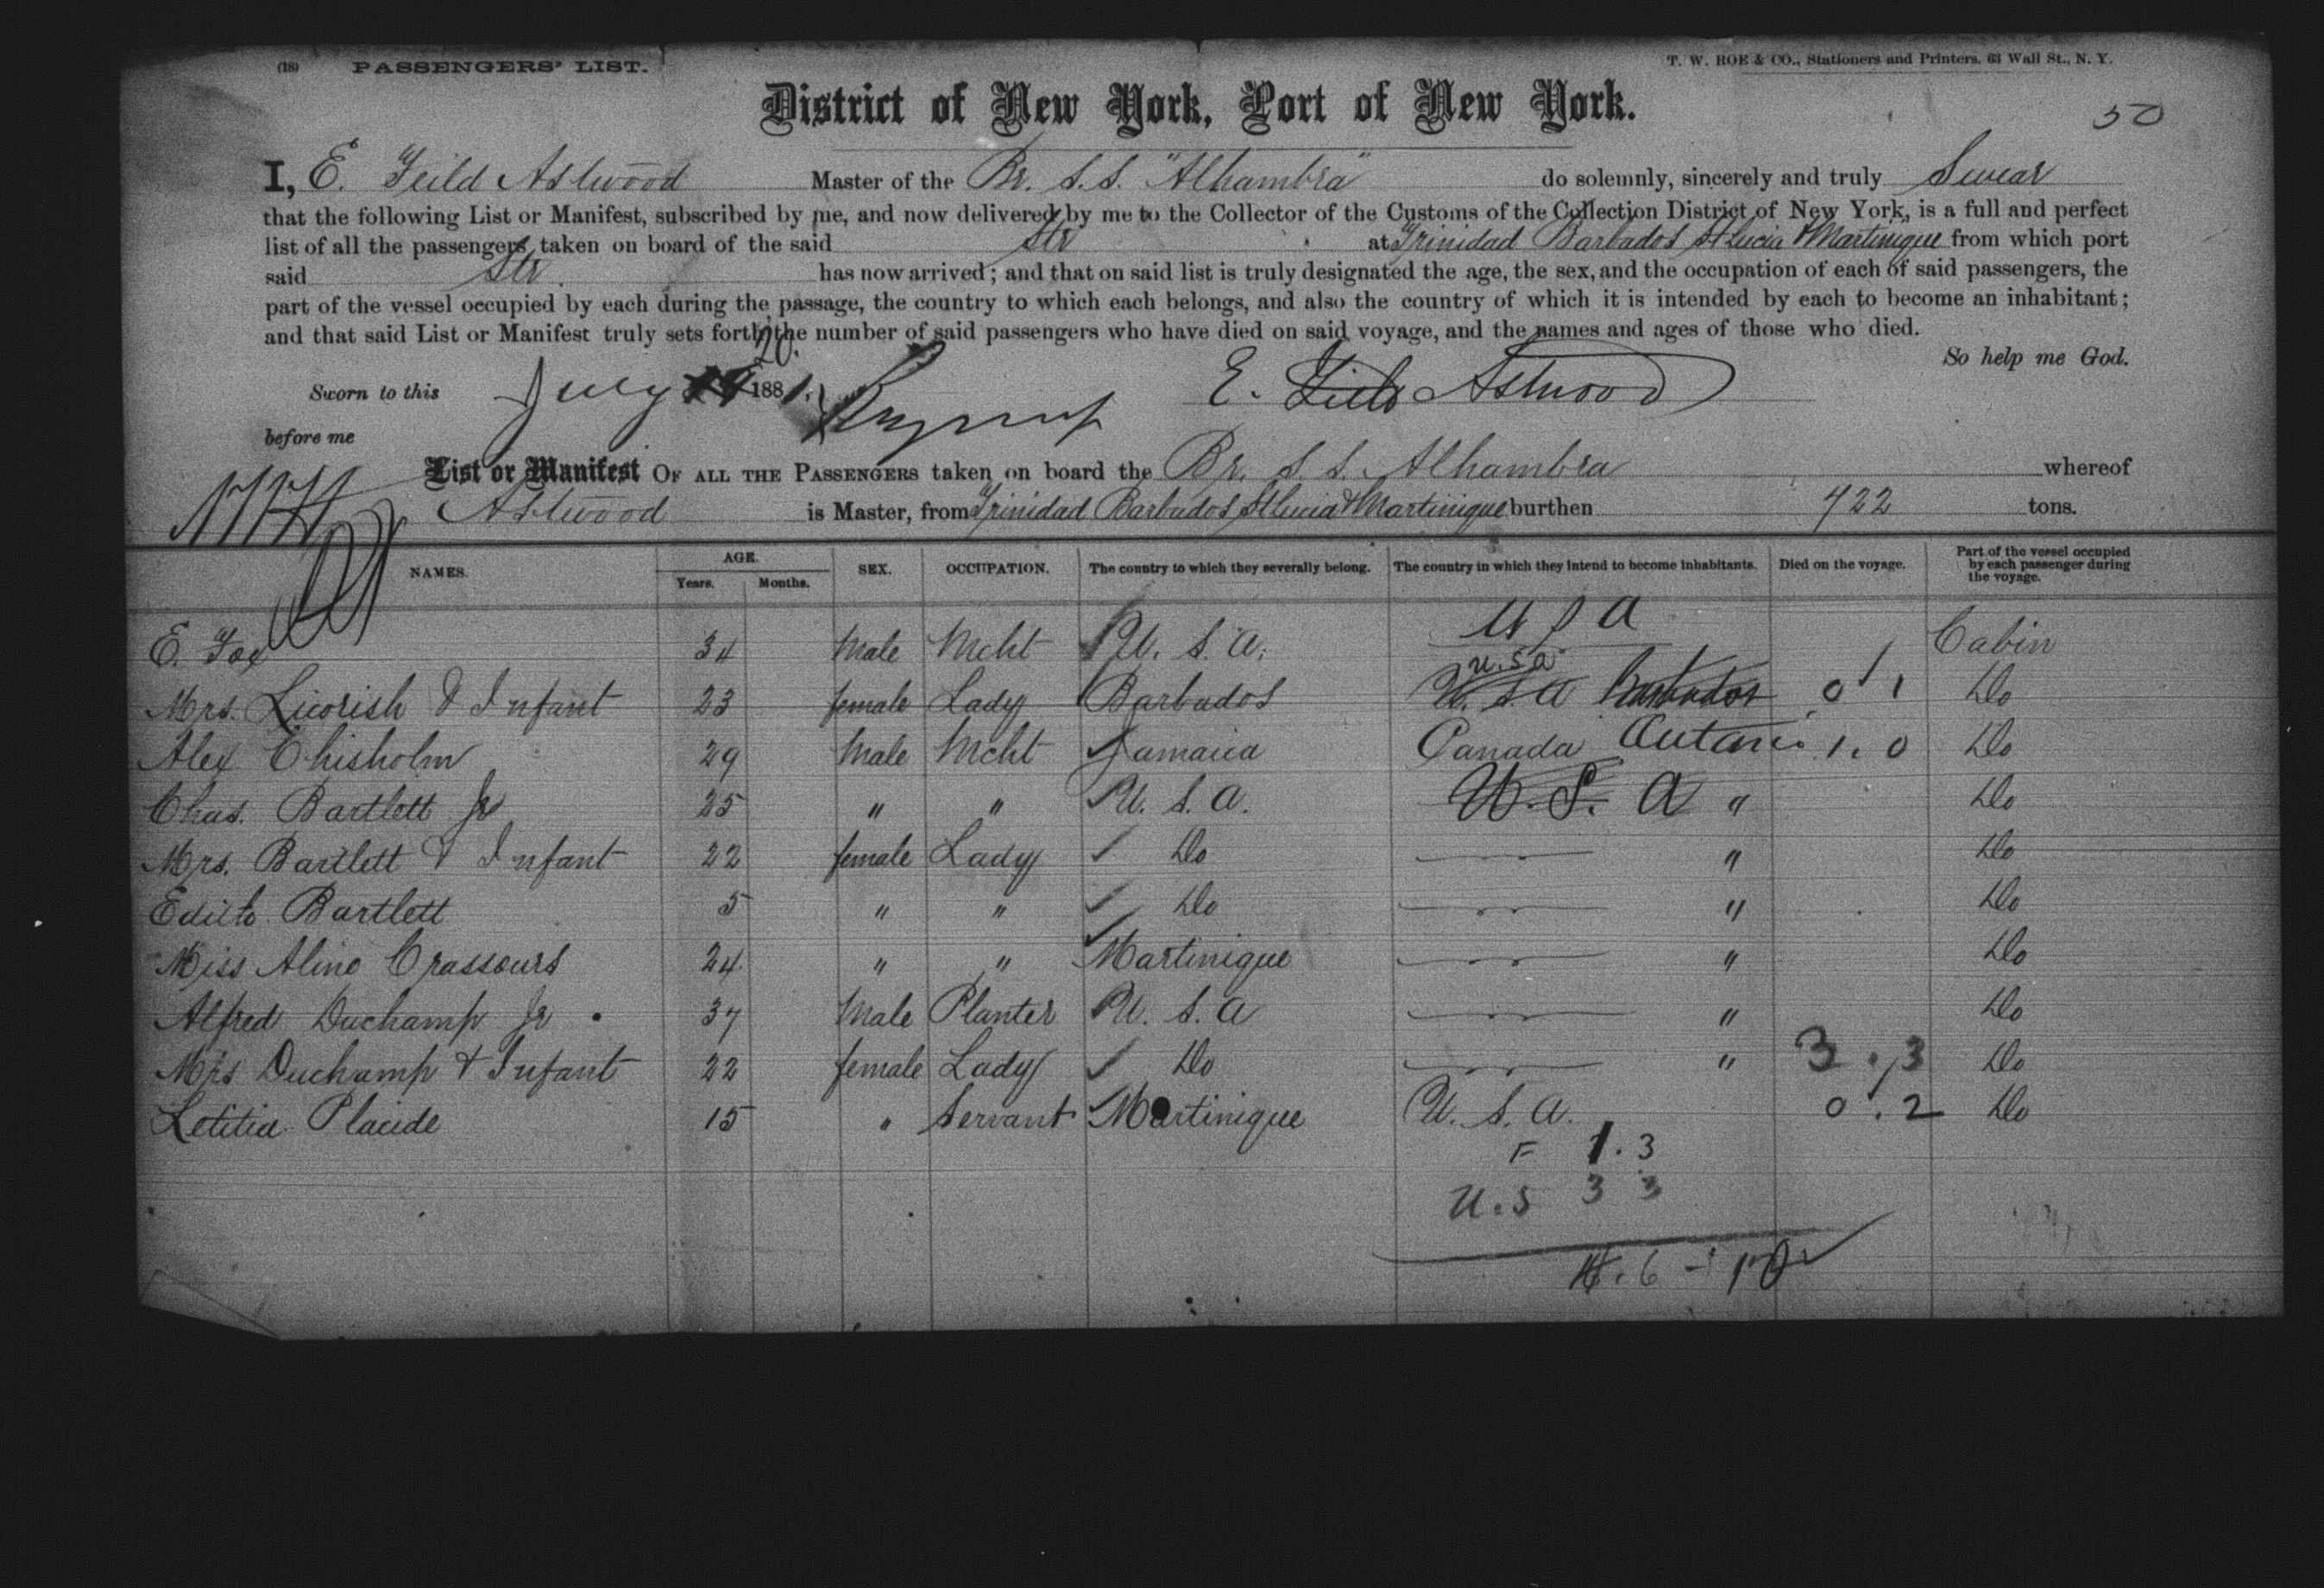 (18) PASSENGERS' LIST.
T. W. ROE & CO., Stationers and Printers, 63 Wall St., N. Y.
District of New York, Port of New York.
50
I, E. Feild Astwood Master of the Br. S.S. "Alhambra" do solemnly, sincerely and truly Swear
that the following List or Manifest, subscribed by me, and now delivered by me to the Collector of the Customs of the Collection District of New York, is a full and perfect
list of all the passengers taken on board of the said Str at Trinidad Barbados St Lucia & Martinique from which port
said Str. has now arrived; and that on said list is truly designated the age, the sex, and the occupation of each of said passengers, the
part of the vessel occupied by each during the passage, the country to which each belongs, and also the country of which it is intended by each to become an inhabitant;
and that said List or Manifest truly sets forth the number of said passengers who have died on said voyage, and the names and ages of those who died.
So help me God.
20.
Sworn to this July 19 1881. E. Feild Astwood
before me
List or Manifest OF ALL THE PASSENGERS taken on board the Br. S. S. Alhambra whereof
Astwood is Master, from Trinidad Barbados St Lucia & Martinique burthen 722 tons.
NAMES. AGE. Years. Months. SEX. OCCUPATION. The country to which they severally belong. The country in which they intend to become inhabitants. Died on the voyage. Part of the vessel occupied by each passenger during the voyage.
E. Fox 34 Male Mcht U. S. A. U S A Cabin
U.S.A
Mrs. Licorish & Infant 23 female Lady Barbados U. S. A Barbados 0 1 Do
Alex Chisholm 29 Male Mcht Jamaica Canada Ontario 1. 0 Do
Chas. Bartlett Jr 25 " " U. S. A. U. S. A " Do
Mrs. Bartlett & Infant 22 female Lady Do " Do
Edith Bartlett 5 " " Do " Do
Miss Aline Crassours 24 " " Martinique " Do
Alfred Duchamp Jr 37 Male Planter U. S. A " Do
Mrs Duchamp & Infant 22 female Lady Do " 3. 3 Do
Letitia Placide 15 " Servant Martinique U. S. A. 0. 2 Do
F 1. 3
U.S 3 3
4. 6 - 10